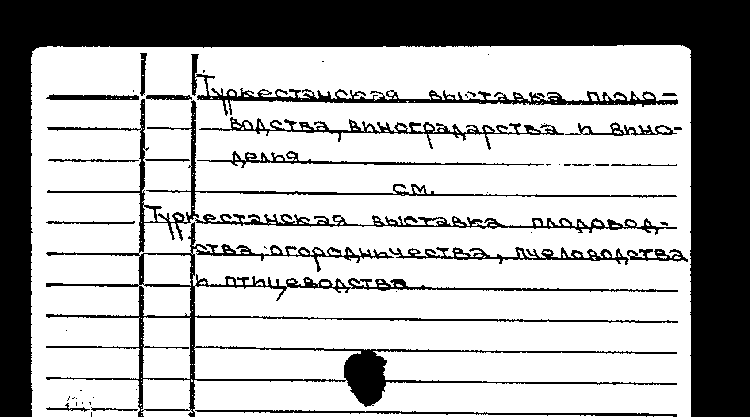 Туркестанская выставка плодо=
водства, виноградарства и вино-
делия.
см.
Туркестанская выставка плодовод-
ства, огородничества, пчеловодства
и птицеводства.